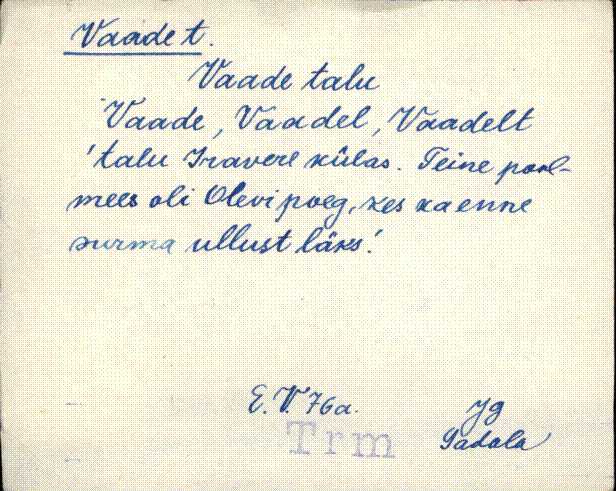 Vaade t.
Vaade talu
Vaade, Vaadel, Vaadelt
'talu Iravere külas. Teine pool-
mees oli Olevi poeg, kes ka enne
surma ullust läks!
E.V. 76a.
Jg
Trm
Sadala